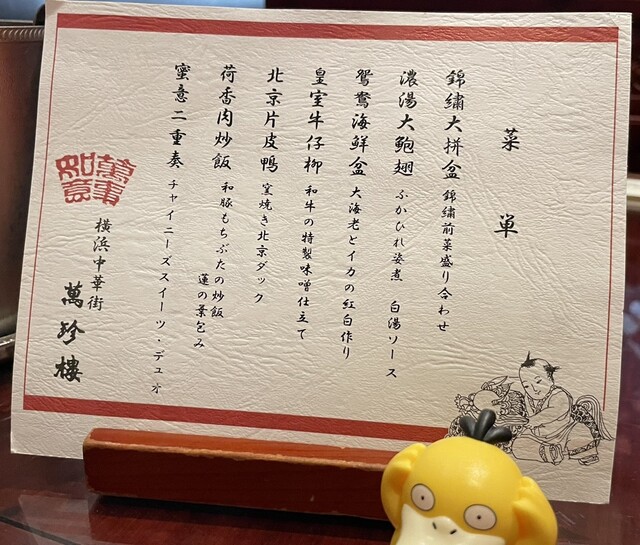 菜単
錦繡大拼盆 錦繡前菜盛り合わせ
濃湯大鮑翅 ふかひれ姿煮 白湯ソース
鴛鴦海鮮盆 大海老とイカの紅白作り
皇室牛仔柳 和牛の特製味噌仕立て
北京片皮鴨 窯焼き北京ダック
荷香肉炒飯 和豚もちぶたの炒飯
蓮の葉包み
蜜意二重奏 チャイニーズスイーツ・デュオ
横浜中華街
萬珍樓
萬事
如意